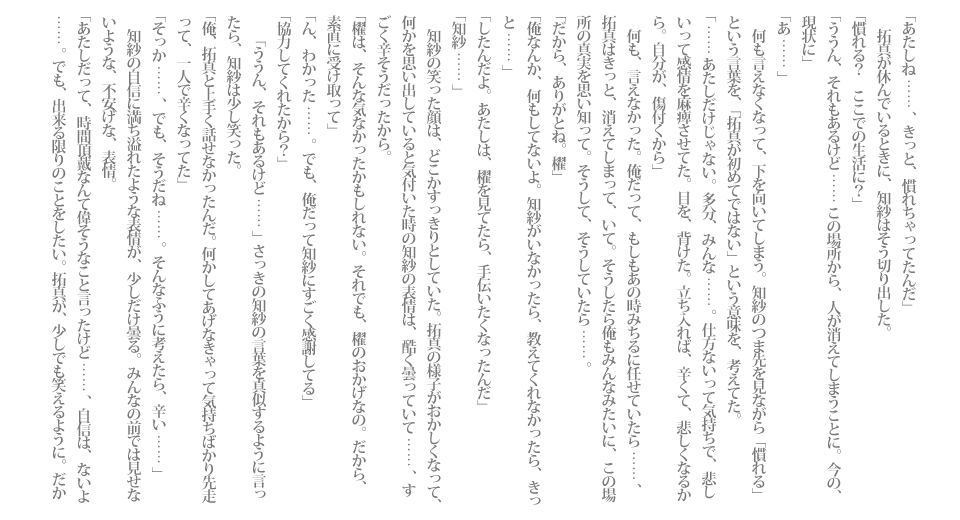 「あたしね……、きっと、慣れちゃってたんだ」
　拓真が休んでいるときに、知紗はそう切り出した。
「慣れる？　ここでの生活に？」
「ううん、それもあるけど……この場所から、人が消えてしまうことに。今の、
現状に」
「あ……」
　何も言えなくなって、下を向いてしまう。知紗のつま先を見ながら「慣れる」
という言葉を、「拓真が初めてではない」という意味を、考えてた。
「……あたしだけじゃない。多分、みんな……。仕方ないって気持ちで、悲し
いって感情を麻痺させてた。目を、背けた。立ち入れば、辛くて、悲しくなるか
ら。自分が、傷付くから」
　何も、言えなかった。俺だって、もしもあの時みちるに任せていたら……、
拓真はきっと、消えてしまって、いて。そうしたら俺もみんなみたいに、この場
所の真実を思い知って。そうして、そうしていたら……。
「だから、ありがとね。櫂」
「俺なんか、何もしてないよ。知紗がいなかったら、教えてくれなかったら、きっ
と……」
「したんだよ。あたしは、櫂を見てたら、手伝いたくなったんだ」
「知紗……」
　知紗の笑った顔は、どこかすっきりとしていた。拓真の様子がおかしくなって、
何かを思い出していると気付いた時の知紗の表情は、酷く曇っていて……、す
ごく辛そうだったから。
「櫂は、そんな気なかったかもしれない。それでも、櫂のおかげなの。だから、
素直に受け取って」
「ん、わかった……。でも、俺だって知紗にすごく感謝してる」
「協力してくれたから？」
　「ううん、それもあるけど……」さっきの知紗の言葉を真似するように言っ
たら、知紗は少し笑った。
「俺、拓真と上手く話せなかったんだ。何かしてあげなきゃって気持ちばかり先走
って、一人で辛くなってた」
「そっか……、でも、そうだね……。そんなふうに考えたら、辛い……」
　知紗の自信に満ち溢れたような表情が、少しだけ曇る。みんなの前では見せな
いような、不安げな、表情。
「あたしだって、時間頂戴なんて偉そうなこと言ったけど……、自信は、ないよ
……。でも、出来る限りのことをしたい。拓真が、少しでも笑えるように。だか